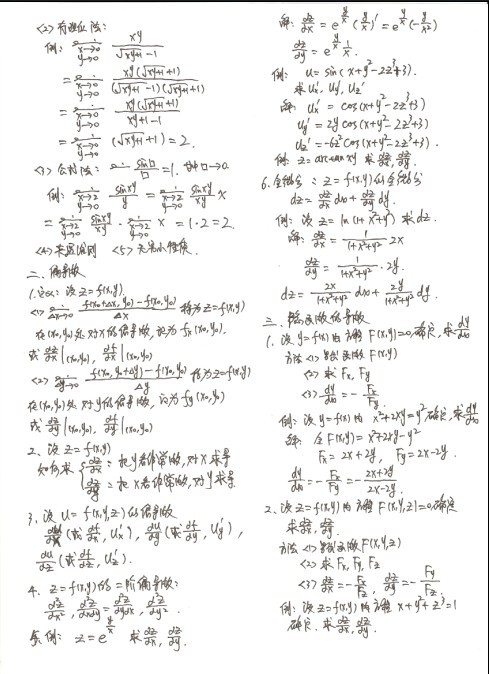 <2> 有理化法:
例: lim x→0 y→0 xy / (√(xy+1) -1)
= lim x→0 y→0 xy(√(xy+1)+1) / (√(xy+1)-1)(√(xy+1)+1)
= lim x→0 y→0 xy(√(xy+1)+1) / (xy+1-1)
= lim x→0 y→0 (√(xy+1)+1) = 2.
<3> 公式法: lim sin□/□ = 1. 其中□→0
例: lim x→2 y→0 sinxy/y = lim x→2 y→0 sinxy/xy · x
= lim x→2 y→0 sinxy/xy · lim x→2 y→0 x = 1·2 = 2
<4> 夹逼准则 <5> 无穷小性质.
二、偏导数
1. 定义: 设 z=f(x,y).
<1> lim Δx→0 (f(x₀+Δx, y₀) - f(x₀,y₀)) / Δx 称为 z=f(x,y)
在(x₀,y₀)处对x的偏导数, 记为 fx(x₀,y₀),
或 ∂z/∂x|(x₀,y₀), ∂f/∂x|(x₀,y₀)
<2> lim Δy→0 (f(x₀,y₀+Δy) - f(x₀,y₀)) / Δy 称为 z=f(x,y)
在(x₀,y₀)处对y的偏导数, 记为 fy(x₀,y₀)
或 ∂z/∂y|(x₀,y₀), ∂f/∂y|(x₀,y₀)
2、设 z=f(x,y)
如何求 { ∂z/∂x: 把y看作常数, 对x求导
∂z/∂y: 把x看作常数, 对y求导
3、设 u=f(x,y,z) 的偏导数
∂u/∂x (或 ∂f/∂x, ux′), ∂u/∂y (或 ∂f/∂y, uy′),
∂u/∂z (或 ∂f/∂z, uz′).
4、z=f(x,y) 的二阶偏导数:
∂²z/∂x², ∂²z/∂x∂y = ∂²z/∂y∂x, ∂²z/∂y².
例: z=e^(y/x) 求 ∂z/∂x, ∂z/∂y.
解: ∂z/∂x = e^(y/x) (y/x)′ = e^(y/x) (-y/x²)
∂z/∂y = e^(y/x) 1/x.
例: u=sin(x+y²-2z³+3).
求 ux′, uy′, uz′
解: ux′ = cos(x+y²-2z³+3)
uy′ = 2y cos(x+y²-2z³+3)
uz′ = -6z² cos(x+y²-2z³+3).
例: z=arctanxy 求 ∂z/∂x, ∂z/∂y.
6. 全微分: z=f(x,y) 的全微分
dz = ∂z/∂x dx + ∂z/∂y dy.
例: 设 z=ln(1+x²+y²) 求 dz.
解: ∂z/∂x = 1/(1+x²+y²) 2x
∂z/∂y = 1/(1+x²+y²) · 2y.
dz = 2x/(1+x²+y²) dx + 2y/(1+x²+y²) dy.
三、隐函数的导数
1、设 y=f(x) 由方程 F(x,y)=0, 确定, 求 dy/dx
方法 <1> 引函数 F(x,y)
<2> 求 Fx, Fy
<3> dy/dx = -Fx/Fy
例: 设 y=f(x) 由 x²+2xy=y² 确定, 求 dy/dx
解: 令 F(x,y) = x²+2xy-y²
Fx=2x+2y, Fy=2x-2y.
dy/dx = -Fx/Fy = -(2x+2y)/(2x-2y).
2、设 z=f(x,y) 由方程 F(x,y,z)=0, 确定
求 ∂z/∂x, ∂z/∂y.
方法 <1> 引函数 F(x,y,z)
<2> 求 Fx, Fy, Fz
<3> ∂z/∂x = -Fx/Fz, ∂z/∂y = -Fy/Fz.
例: 设 z=f(x,y) 由方程 x+y²+z³=1
确定. 求 ∂z/∂x, ∂z/∂y.